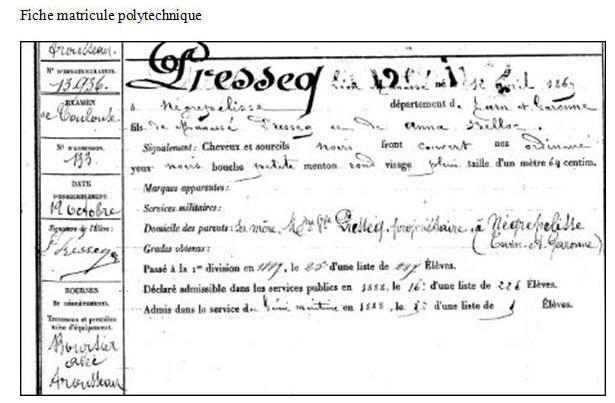 Fiche matricule polytechnique
Arousseau.
N° D'IMMATRICULATION.
13936.
EXAMEN
de Toulouse
N° D'EXAMEN
133
DATE
D'ENREGISTREMENT
19 octobre
Signature de l'Élève :
Presseq
BOURSES
Trousseau et première
mise d'équipement.
Boursier
avec
Arousseau
Presseq né 12 avril 1867
à Négrepelisse département de Tarn et Garonne
fils de Manassé Presseq et de Anna Belloc
Signalement : Cheveux et sourcils noirs front couvert nez ordinaire
yeux noirs bouche petite menton rond visage plein taille d'un mètre 64 centim.
Marques apparentes :
Services militaires :
Domicile des parents : Sa mère, Mme Vve Presseq, propriétaire à Négrepelisse
(Tarn-et-Garonne)
Grades obtenus :
Passé à la 1re division en 1887, le 25e d'une liste de 237 Élèves.
Déclaré admissible dans les services publics en 1888, le 16e d'une liste de 226 Élèves.
Admis dans le service du Génie maritime en 1888, le d'une liste de Élèves.